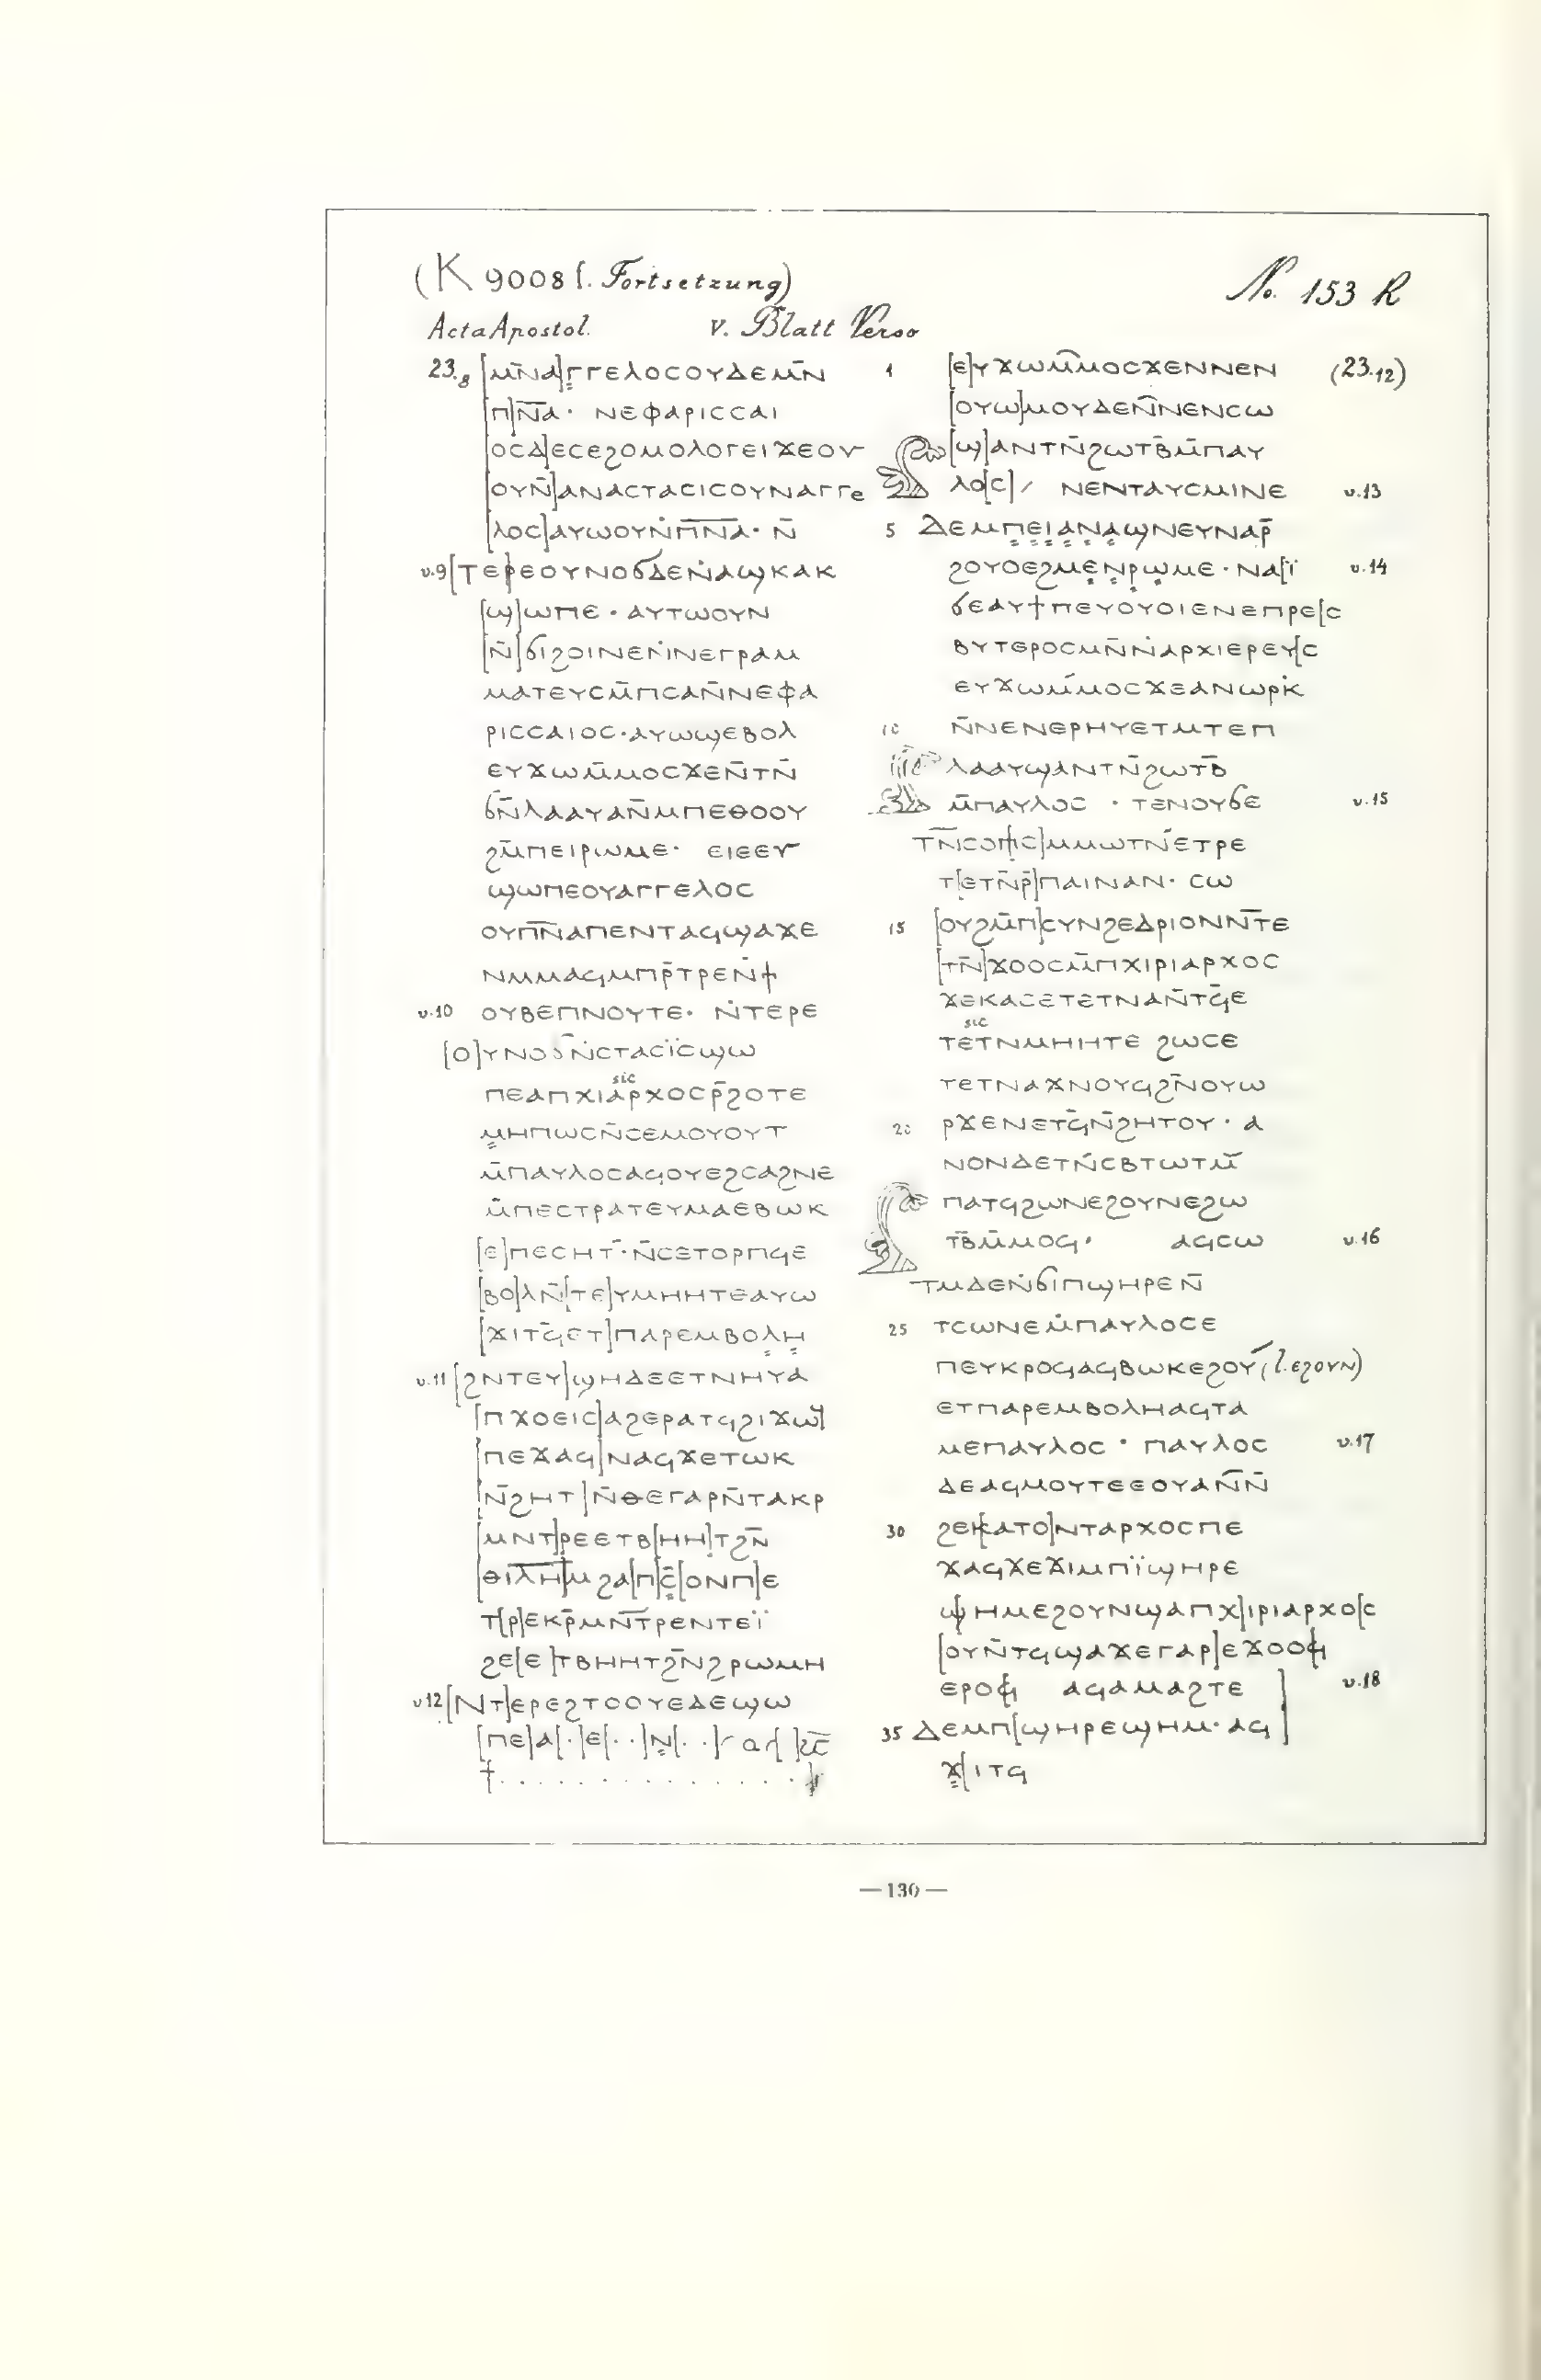 (K 9008 f. Fortsetzung)
No. 153 R
Acta Apostol. V. Blatt Verso
23.8 [ⲙⲛ̄ⲁ]ⲅⲅⲉⲗⲟⲥⲟⲩⲇⲉⲙⲛ̄
[ⲡ]ⲛ̄ⲁ̄· ⲛⲉⲫⲁⲣⲓⲥⲥⲁⲓ
[ⲟⲥⲇ]ⲉⲥⲉϩⲟⲙⲟⲗⲟⲅⲉⲓϫⲉⲟⲩ
[ⲟⲩⲛ̄]ⲁⲛⲁⲥⲧⲁⲥⲓⲥⲟⲩⲛⲁⲅⲅⲉ
[ⲗⲟⲥ]ⲁⲩⲱⲟⲩⲛ̇ⲡ̄ⲛ̄ⲁ̄· ⲛ̄
v.9 [ⲧⲉⲣ]ⲉⲟⲩⲛⲟϭⲇⲉⲛ̇ⲁϣⲕⲁⲕ
[ϣ]ⲱⲡⲉ· ⲁⲩⲧⲱⲟⲩⲛ
[ⲛ̄]ϭⲓϩⲟⲓⲛⲉⲛ̇ⲛⲉⲅⲣⲁⲙ
ⲙⲁⲧⲉⲩⲥⲙ̄ⲡⲥⲁⲛ̄ⲛⲉⲫⲁ
ⲣⲓⲥⲥⲁⲓⲟⲥ·ⲁⲩⲱϣⲉⲃⲟⲗ
ⲉⲩϫⲱⲙ̄ⲙⲟⲥϫⲉⲛ̄ⲧⲛ̄
ϭⲛ̄ⲗⲁⲁⲩⲁⲛ̄ⲙⲡⲉⲑⲟⲟⲩ
ϩⲙ̄ⲡⲉⲓⲣⲱⲙⲉ· ⲉⲓⲉⲉⲩ
ϣⲱⲡⲉⲟⲩⲁⲅⲅⲉⲗⲟⲥ
ⲟⲩⲡ̄ⲛ̄ⲁⲡⲉⲛⲧⲁϥϣⲁϫⲉ
ⲛⲙⲙⲁϥⲙⲡⲣ̄ⲧⲣⲉⲛ̇ϯ
v.10 ⲟⲩⲃⲉⲡⲛⲟⲩⲧⲉ· ⲛ̇ⲧⲉⲣⲉ
[ⲟ]ⲩⲛⲟϭⲛ̇ⲥⲧⲁⲥⲓ̈ⲥϣⲱ
sic
ⲡⲉⲁⲡⲭⲓⲁⲣⲭⲟⲥⲣ̄ϩⲟⲧⲉ
ⲙⲏⲡⲱⲥⲛ̄ⲥⲉⲙⲟⲩⲟⲩⲧ
ⲙ̄ⲡⲁⲩⲗⲟⲥⲁϥⲟⲩⲉϩⲥⲁϩⲛⲉ
ⲙ̄ⲡⲉⲥⲧⲣⲁⲧⲉⲩⲙⲁⲉⲃⲱⲕ
[ⲉ]ⲡⲉⲥⲏⲧ·ⲛ̄ⲥⲉⲧⲟⲣⲡϥⲉ
[ⲃⲟ]ⲗⲛ̄[ⲧⲉ]ⲩⲙⲏⲏⲧⲉⲁⲩⲱ
[ϫⲓⲧϥ̄ⲉⲧ]ⲡⲁⲣⲉⲙⲃⲟⲗⲏ
v.11 [ϩⲛⲧⲉⲩ]ϣⲏⲇⲉⲉⲧⲛⲏⲩⲁ
[ⲡϫⲟⲉⲓⲥ]ⲁϩⲉⲣⲁⲧϥϩⲓϫⲱϥ
[ⲡⲉϫⲁϥ]ⲛⲁϥϫⲉⲧⲱⲕ
[ⲛ̄ϩⲏⲧ]ⲛ̄ⲑⲉⲅⲁⲣⲛ̄ⲧⲁⲕⲣ
[ⲙⲛⲧ]ⲣⲉⲉⲧⲃ[ⲏⲏ]ⲧϩⲛ̄
[ⲑⲓⲗ̄ⲏ̄]ⲙϩⲁ[ⲡ]ⲥ̄[ⲟⲛⲡ]ⲉ
ⲧ[ⲣ]ⲉⲕⲣ̄ⲙⲛ̄ⲧⲣⲉⲛⲧⲉⲓ̈
ϩⲉ[ⲉ]ⲧⲃⲏⲏⲧϩⲛ̄ϩⲣⲱⲙⲏ
v 12 [ⲛⲧ]ⲉⲣⲉϩⲧⲟⲟⲩⲉⲇⲉϣⲱ
[ⲡⲉ]ⲁ[·]ⲉ[··]ⲛ[··]
1 [ⲉ]ⲩϫⲱⲙ̄ⲙⲟⲥϫⲉⲛⲛⲉⲛ (23.12)
[ⲟⲩⲱ]ⲙⲟⲩⲇⲉⲛ̄ⲛⲉⲛⲥⲱ
[ϣ]ⲁⲛⲧⲛ̄ϩⲱⲧⲃ̄ⲙ̄ⲡⲁⲩ
ⲗⲟ[ⲥ]/ ⲛⲉⲛⲧⲁⲩⲥⲙⲓⲛⲉ v.13
5 ⲇⲉⲙⲡⲉⲓⲁⲛⲁϣⲛⲉⲩⲛⲁⲣ̄
ϩⲟⲩⲟⲉϩⲙⲉⲛⲣⲱⲙⲉ·ⲛⲁ[ⲓ̈ v.14
ϭⲉⲁⲩϯⲡⲉⲩⲟⲩⲟⲓⲉⲛⲉⲡⲣⲉ[ⲥ
ⲃⲩⲧⲉⲣⲟⲥⲙⲛ̄ⲛ̇ⲁⲣⲭⲓⲉⲣⲉⲩ[ⲥ
ⲉⲩϫⲱⲙ̇ⲙⲟⲥϫⲉⲁⲛⲱⲣⲕ̇
10 ⲛ̄ⲛⲉⲛⲉⲣⲏⲩⲉⲧⲙⲧⲉⲡ
ⲗⲁⲁⲩϣⲁⲛⲧⲛ̄ϩⲱⲧⲃ̄
ⲙ̄ⲡⲁⲩⲗⲟⲥ · ⲧⲉⲛⲟⲩϭⲉ v.15
ⲧⲛ̄ⲥⲟⲡ[ⲥ]ⲙⲙⲱⲧⲛ̇ⲉⲧⲣⲉ
ⲧ[ⲉⲧⲛ̄ⲣ̄]ⲡⲁⲓⲛⲁⲛ· ⲥⲱ
15 [ⲟⲩϩⲙ̄ⲡ]ⲥⲩⲛϩⲉⲇⲣⲓⲟⲛⲛ̄ⲧⲉ
[ⲧⲛ̄]ϫⲟⲟⲥⲙ̄ⲡⲭⲓⲣⲓⲁⲣⲭⲟⲥ
ϫⲉⲕⲁⲥⲉⲧⲉⲧⲛⲁⲛ̄ⲧϥ̄ⲉ
sic
ⲧⲉⲧⲛⲙⲏⲏⲧⲉ ϩⲱⲥⲉ
ⲧⲉⲧⲛⲁϫⲛⲟⲩϥϩⲛ̄ⲟⲩⲱ
20 ⲣϫⲉⲛⲉⲧϥ̄ⲛ̄ϩⲏⲧⲟⲩ· ⲁ
ⲛⲟⲛⲇⲉⲧⲛ̇ⲥⲃⲧⲱⲧⲙ̄
ⲡⲁⲧϥϩⲱⲛⲉϩⲟⲩⲛⲉϩⲱ
ⲧⲃ̄ⲙ̄ⲙⲟϥ· ⲁϥⲥⲱ v.16
ⲧⲙⲇⲉⲛ̇ϭⲓⲡϣⲏⲣⲉⲛ̄
25 ⲧⲥⲱⲛⲉⲙ̇ⲡⲁⲩⲗⲟⲥⲉ
ⲡⲉⲩⲕⲣⲟϥⲁϥⲃⲱⲕⲉϩⲟⲩ̄ (l. ⲉϩⲟⲩⲛ)
ⲉⲧⲡⲁⲣⲉⲙⲃⲟⲗⲏⲁϥⲧⲁ
ⲙⲉⲡⲁⲩⲗⲟⲥ · ⲡⲁⲩⲗⲟⲥ v.17
ⲇⲉⲁϥⲙⲟⲩⲧⲉⲉⲟⲩⲁⲛ̄ⲛ̄
30 ϩⲉⲕ[ⲁⲧⲟ]ⲛⲧⲁⲣⲭⲟⲥⲡⲉ
ϫⲁϥϫⲉϫⲓⲙⲡⲓ̈ϣⲏⲣⲉ
ϣⲏⲙⲉϩⲟⲩⲛϣⲁⲡⲭ[ⲓⲣⲓⲁⲣⲭⲟ[ⲥ
[ⲟⲩⲛ̄ⲧϥϣⲁϫⲉⲅⲁⲣ]ⲉϫⲟⲟϥ
ⲉⲣⲟϥ ⲁϥⲁⲙⲁϩⲧⲉ v.18
35 ⲇⲉⲙⲡ[ϣⲏⲣⲉϣⲏⲙ·ⲁϥ]
ϫ[ⲓⲧϥ
—130—